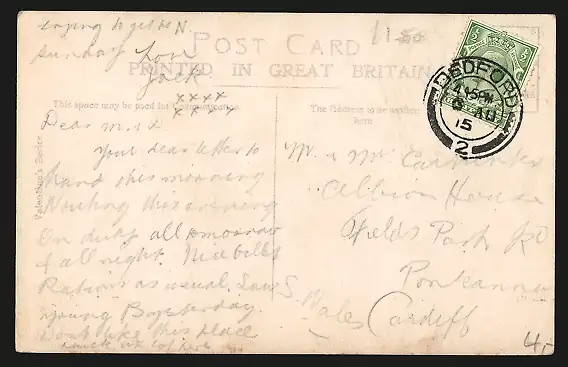 trying to get to N.
Sunday Love
Jack
xxxx
xxxx
11-50
POST CARD
PRINTED IN GREAT BRITAIN
This space may be used for Communication
The Address to be written
here
Valentine's Series
BEDFORD
4 15PM
AU
15
2
Dear
Your dear letter to
hand this morning
Nothing this evening
On duty all tomorrow
& all night.
Rations as usual. Saw
young yesterday.
Dont like this place
Mr & Mrs Carpenter
Albion House
Fields Park Rd
Pontcanna
Cardiff
S. Wales